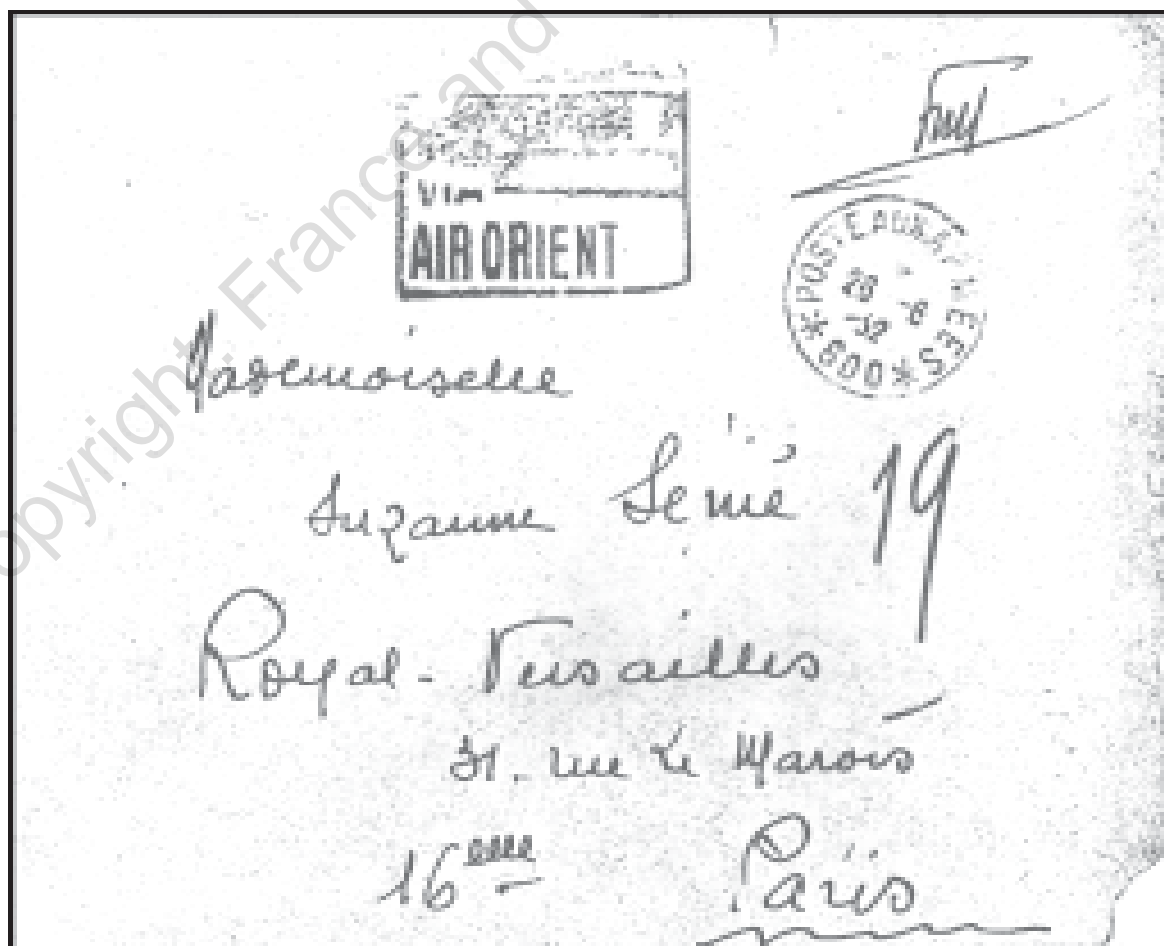 Copyright, France and
F.M
VIA
AIR ORIENT
*POSTE AUX ARMEES*600
28 -6 -32
Mademoiselle
Suzanne 19
Royal-Versailles
31. rue Le Marois
16eme Paris